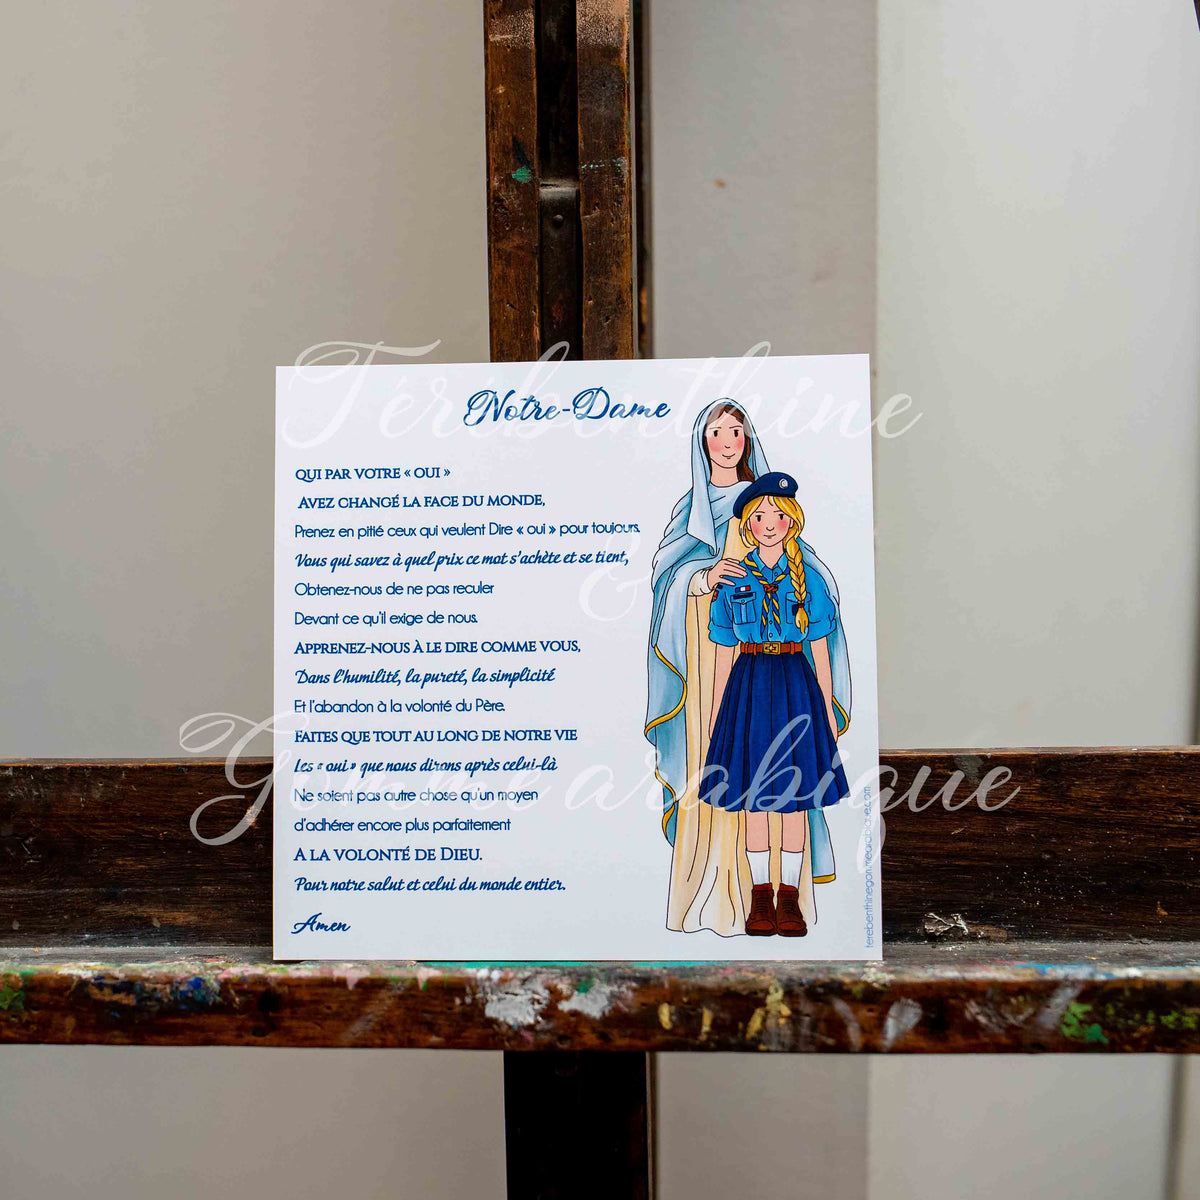 Notre-Dame
QUI PAR VOTRE « OUI »
AVEZ CHANGÉ LA FACE DU MONDE,
Prenez en pitié ceux qui veulent Dire « oui » pour toujours.
Vous qui savez à quel prix ce mot s'achète et se tient,
Obtenez-nous de ne pas reculer
Devant ce qu'il exige de nous.
APPRENEZ-NOUS À LE DIRE COMME VOUS,
Dans l'humilité, la pureté, la simplicité
Et l'abandon à la volonté du Père.
FAITES QUE TOUT AU LONG DE NOTRE VIE
Les « oui » que nous dirons après celui-là
Ne soient pas autre chose qu'un moyen
d'adhérer encore plus parfaitement
A LA VOLONTÉ DE DIEU.
Pour notre salut et celui du monde entier.
Amen
terebenthinegommearabique.com
Térébenthine
&
Gomme arabique